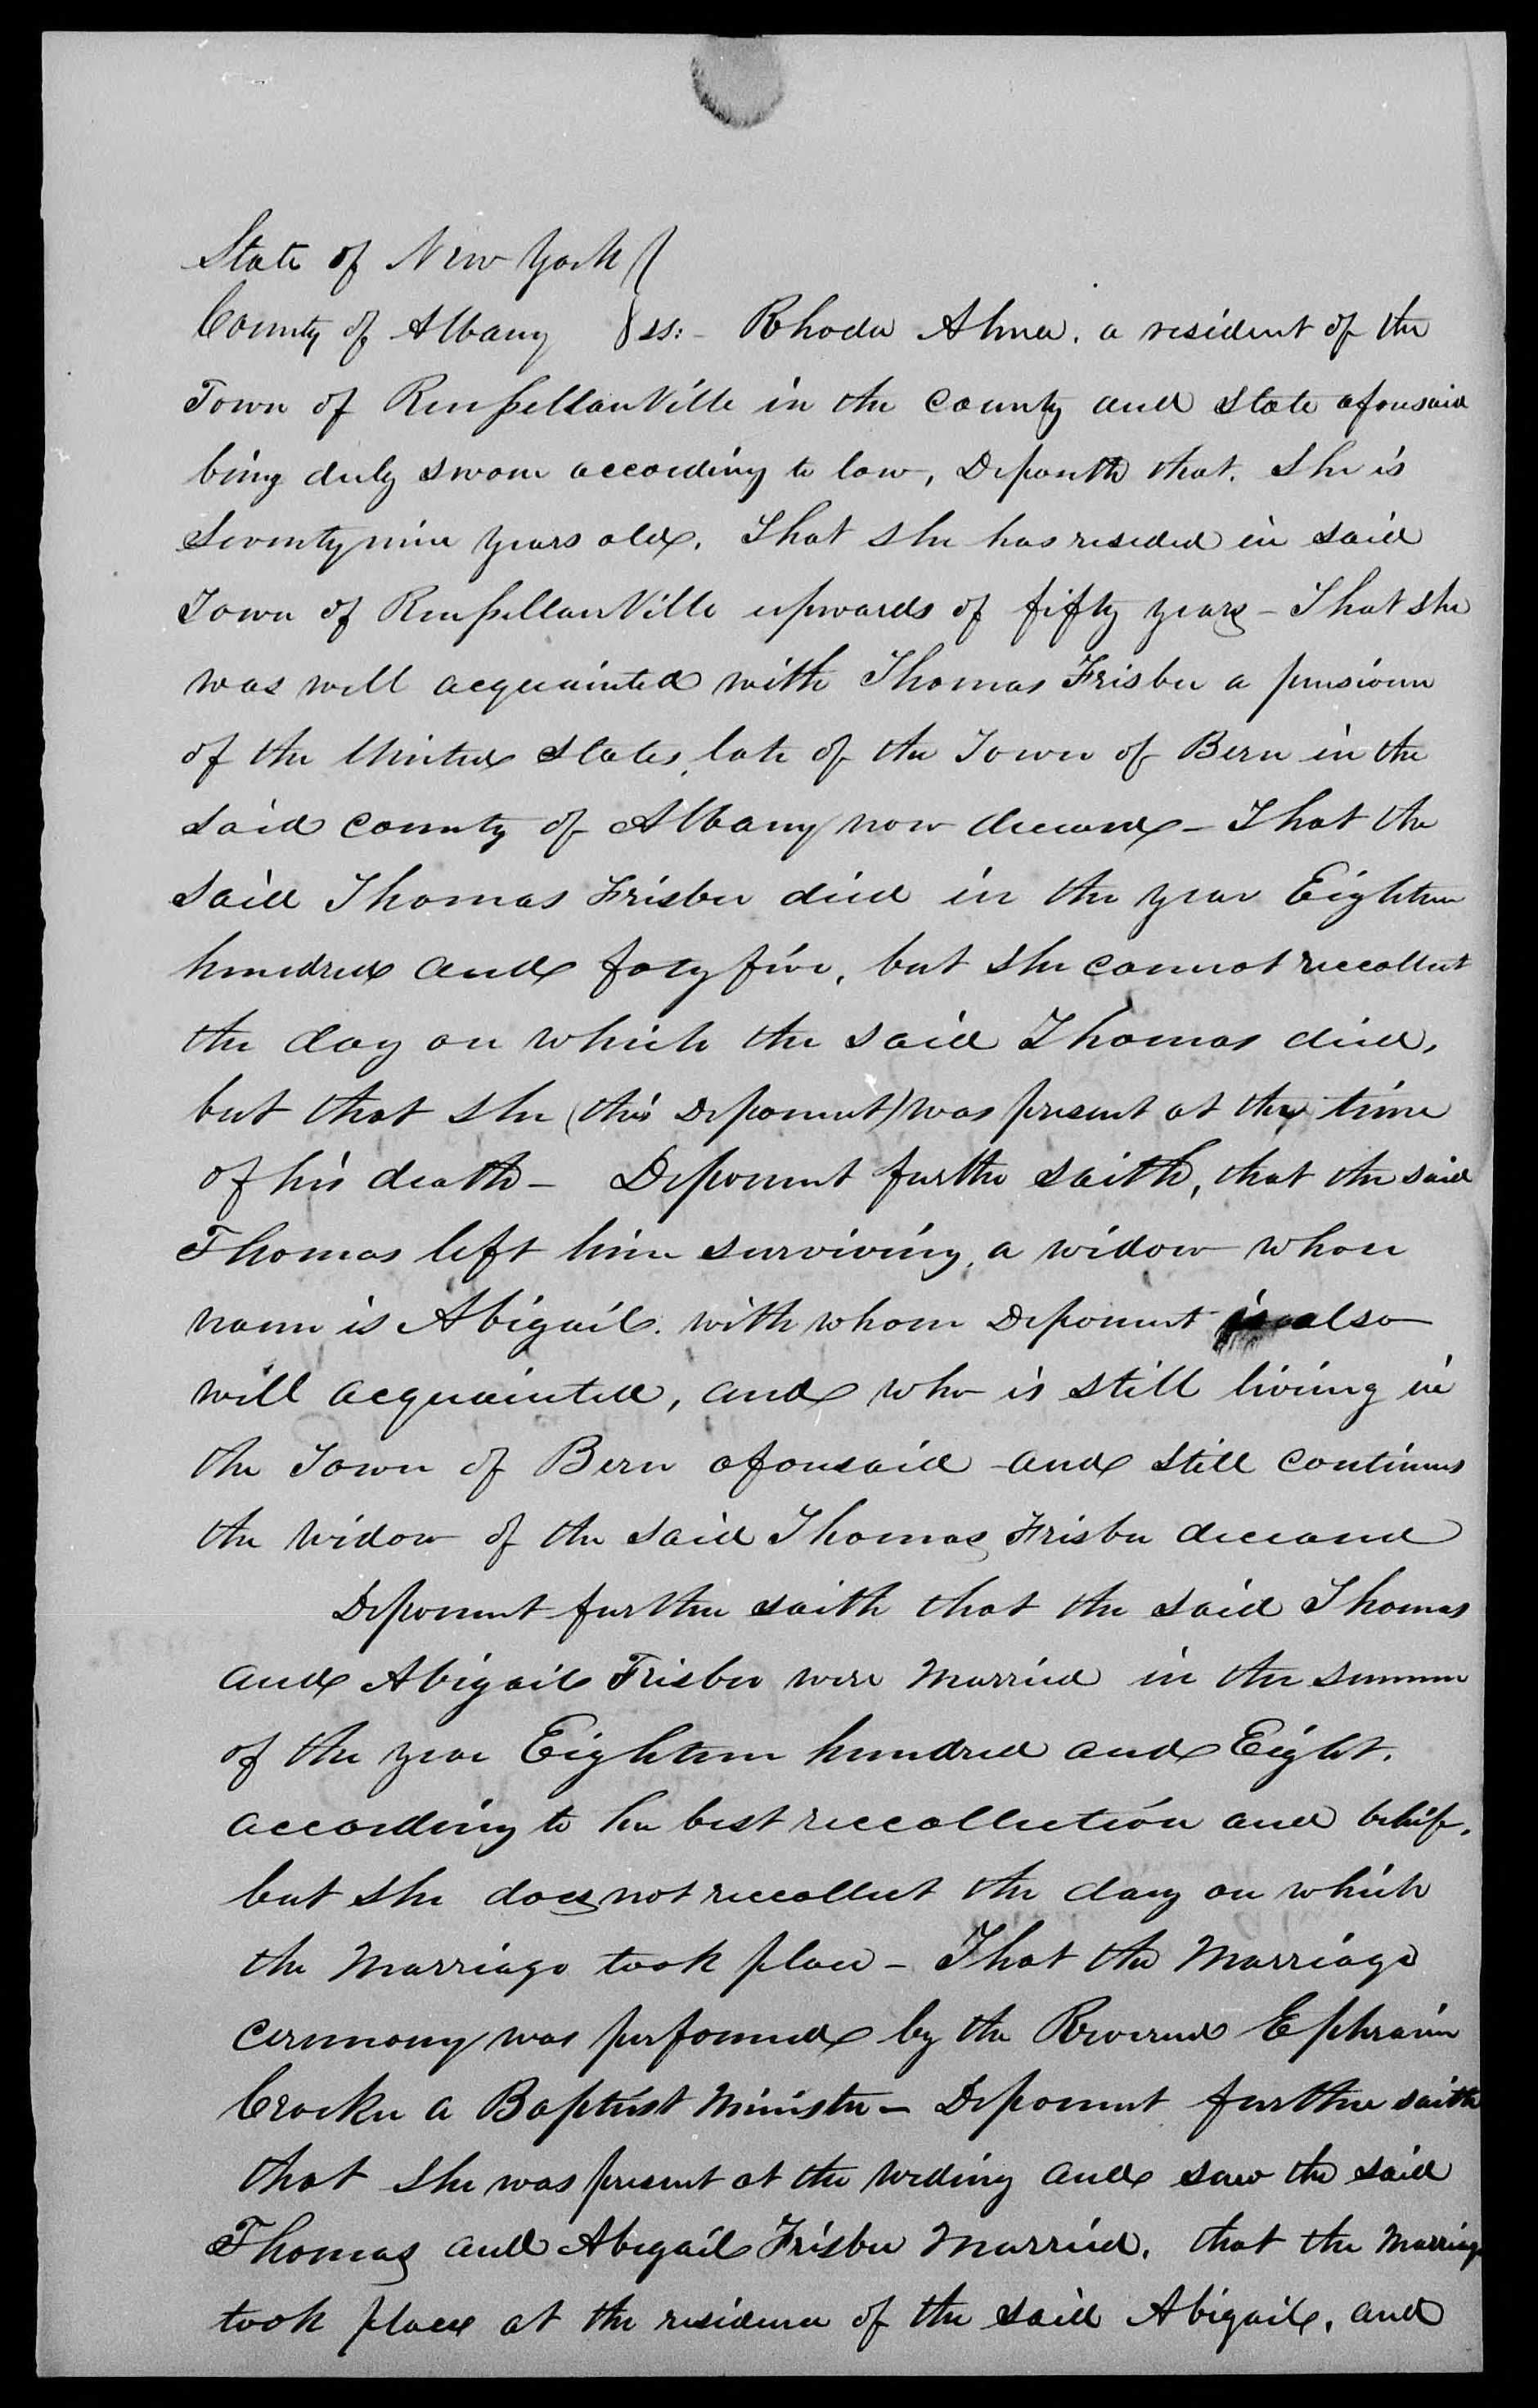 State of New York }
County of Albany } ss:- Rhoda a resident of the
Town of RenssellaerVille in the County and State aforesaid
being duly sworn according to law, Deposeth that She is
Seventy nine years old, That she has resided in said
Town of RensellaerVille upwards of fifty years - That she
was well acquainted with Thomas Frisbee a pensioner
of the United States, late of the Town of Bern in the
said County of Albany now deceased - That the
said Thomas Frisbee died in the year Eighteen
hundred and foty five, but she cannot reccollect
the day on which the said Thomas died,
but that she (this Deponent) was present at the time
of his death - Deponent further saith, that the said
Thomas left him surviving, a widow whose
name is Abigail. with whom Deponent is also
well acquainted, and who is still living in
the Town of Bern aforesaid and still continues
the widow of the said Thomas Frisbee deceased
Deponent further saith that the said Thomas
and Abigail Frisbee were Married in the summer
of the year Eighteen hundred and Eight.
according to her best reccollection and belief,
but she does not reccollect the day on which
the Marriage took place - That the Marriage
ceremony was performed by the Reverend Ephraim
Crocker a Baptist Minister - Deponent further saith
that she was present at the weding and saw the said
Thomas and Abigail Frisbee Married, that the Marriage
took place at the residence of the said Abigail, and